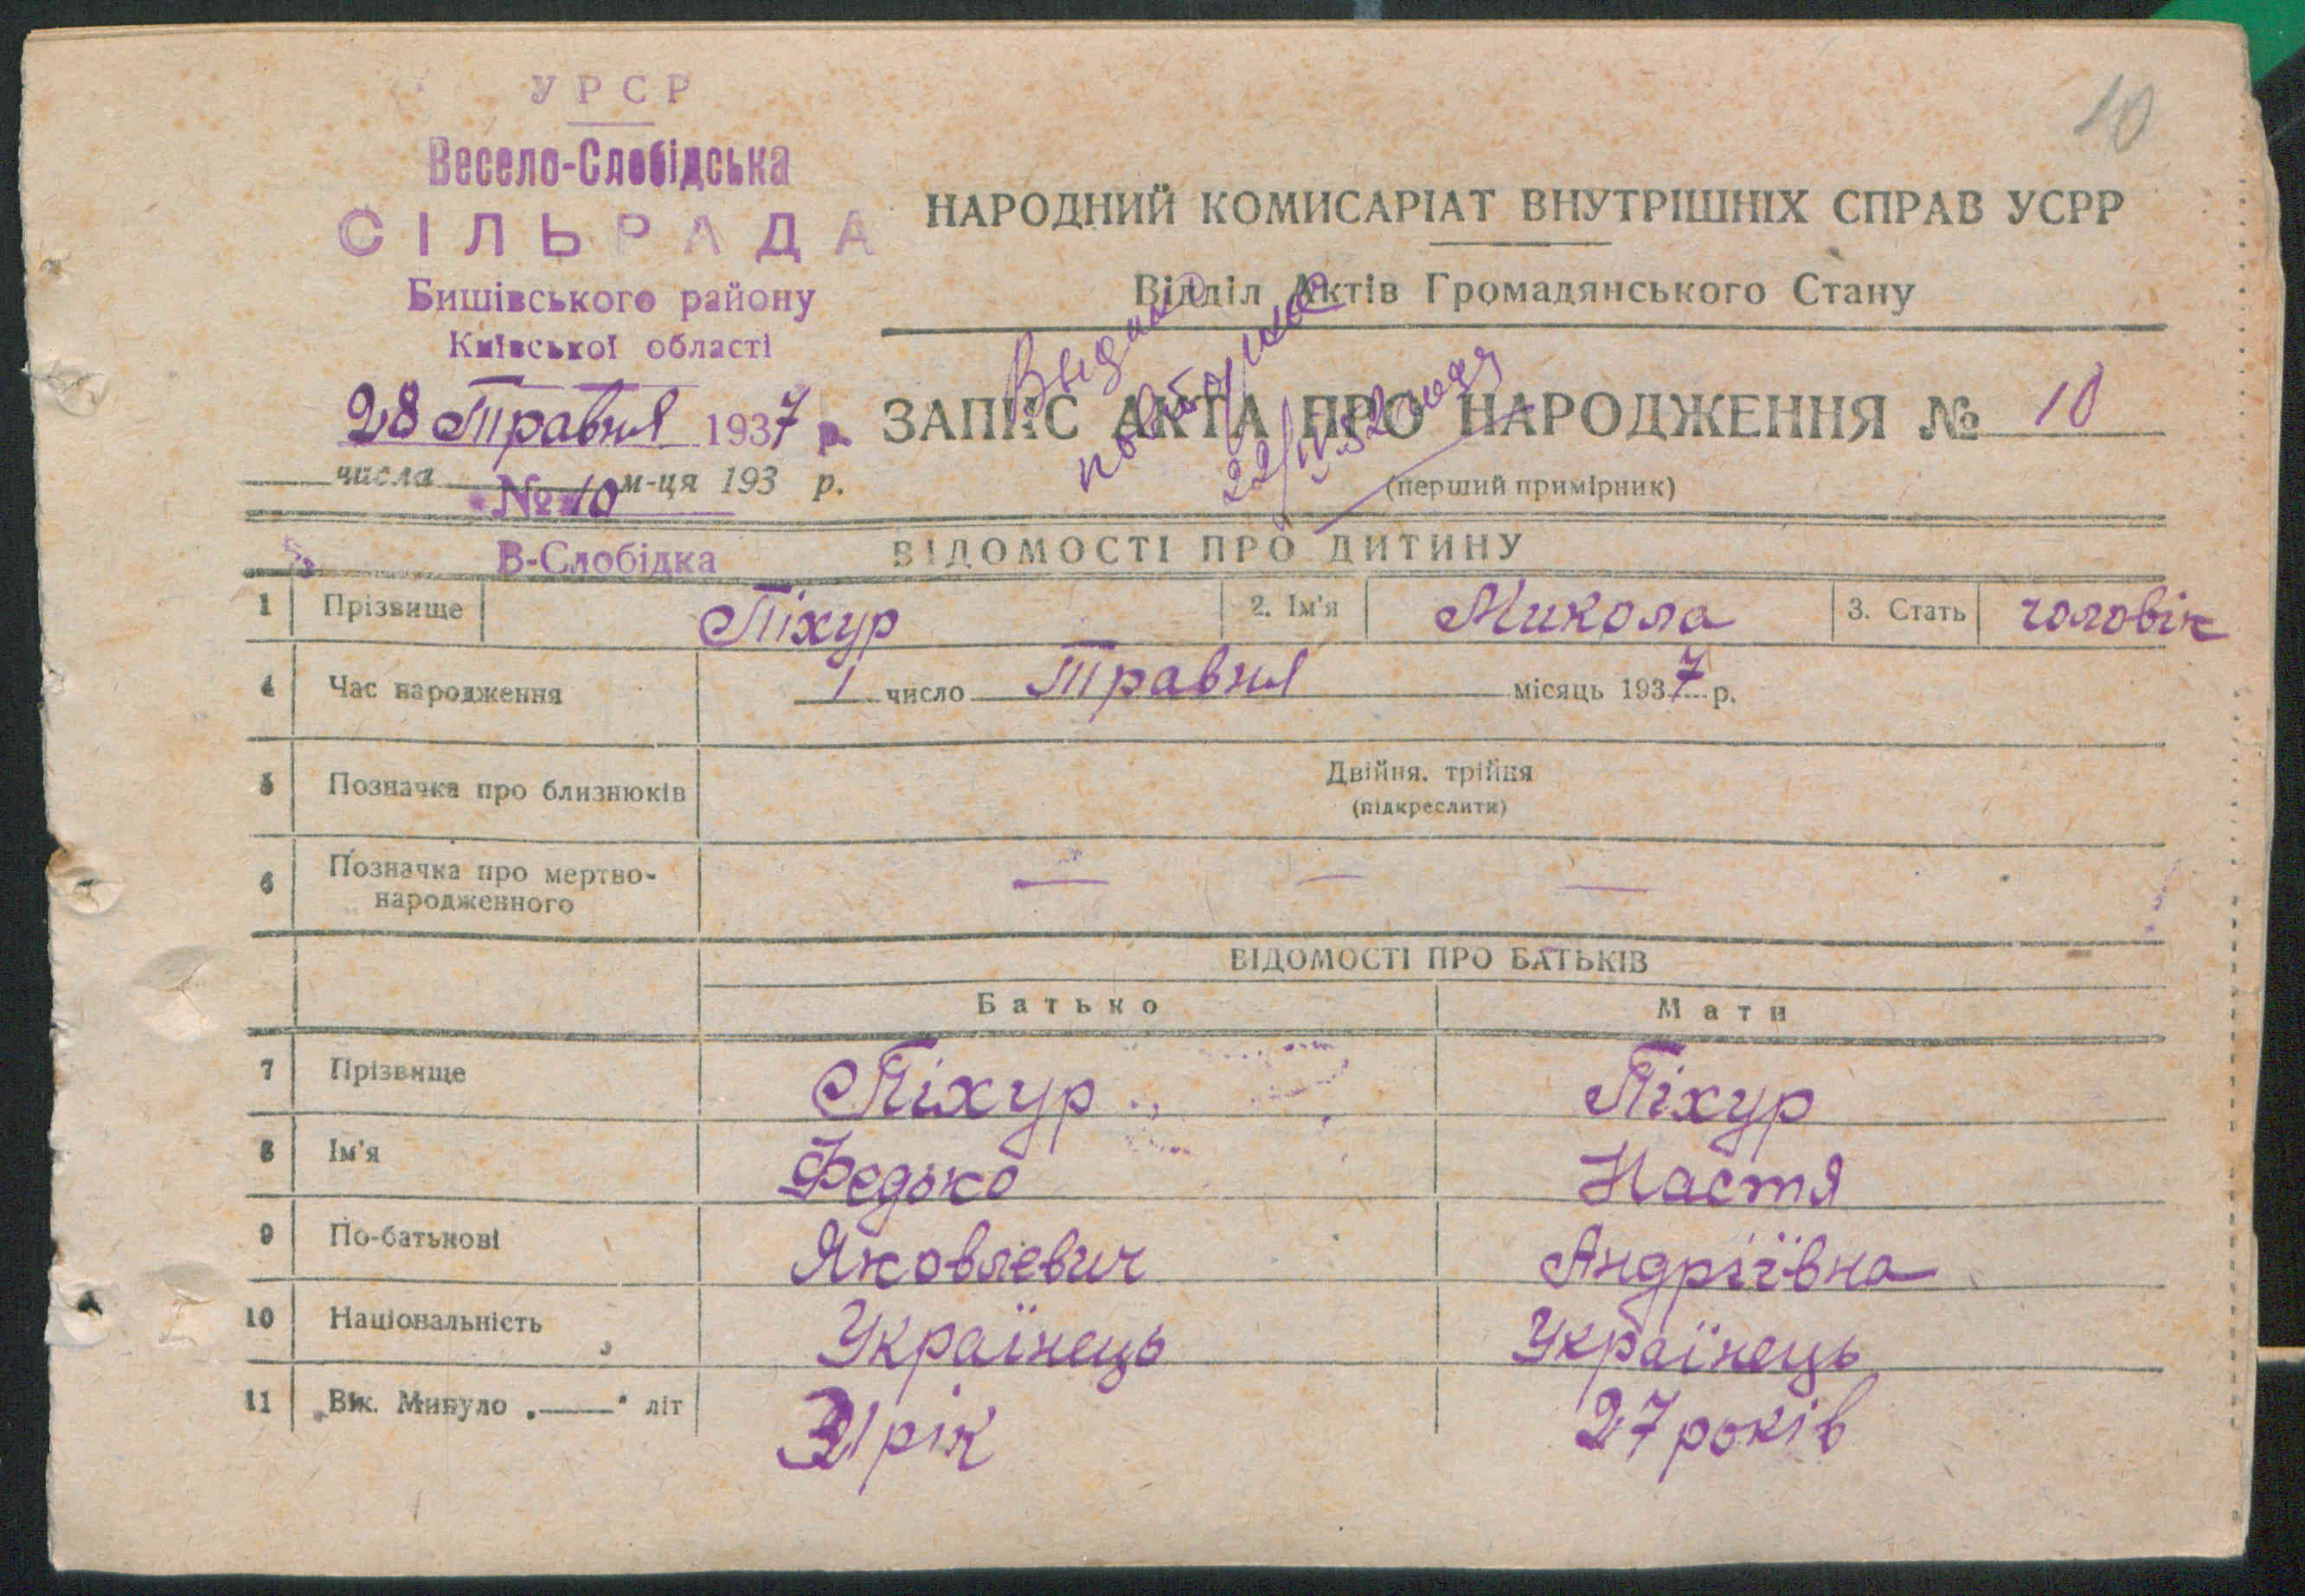 10
УРСР
Весело-Слобідська
СІЛЬРАДА
Бишівського району
Київської області
28 Травня 1937 р.
числа м-ця 193 р.
№ 10
В-Слобідка
НАРОДНИЙ КОМИСАРІАТ ВНУТРІШНІХ СПРАВ УСРР
Відділ Актів Громадянського Стану
ЗАПИС АКТА ПРО НАРОДЖЕННЯ № 10
(перший примірник)
Выдано
22/IV.52
ВІДОМОСТІ ПРО ДИТИНУ
1 Прізвище Піхур 2. Ім'я Микола 3. Стать чоловік
4 Час народження 1 число Травня місяць 1937 р.
5 Позначка про близнюків Двійня, трійня
(підкреслити)
6 Позначка про мертво-
народженного — — —
ВІДОМОСТІ ПРО БАТЬКІВ
Батько Мати
7 Прізвище Піхур Піхур
8 Ім'я Федько Настя
9 По-батькові Яковлевич Андріївна
10 Національність Українець Українець
11 Вік. Минуло „——“ літ 31 рік 27 років